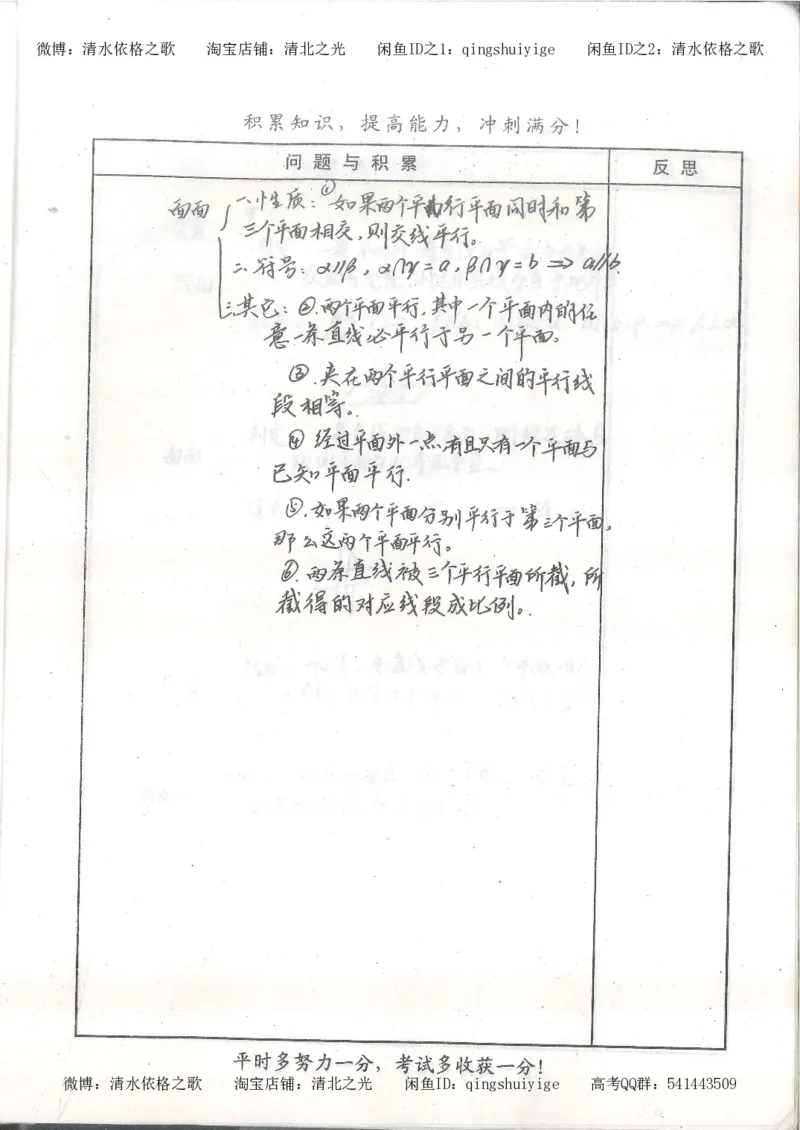 微博：清水依格之歌 淘宝店铺：清北之光 闲鱼ID之1：qingshuiyige 闲鱼ID之2：清水依格之歌
积累知识，提高能力，冲刺满分！
问题与积累 反思
面面 一、性质：①如果两个平行平面同时和第
三个平面相交，则交线平行。
二、符号：α∥β，α∩γ=a，β∩γ=b⇒a∥b.
三、其它：②.两个平面平行，其中一个平面内的任
意一条直线必平行于另一个平面。
③.夹在两个平行平面之间的平行线
段相等。
④经过平面外一点，有且只有一个平面与
已知平面平行.
⑤.如果两个平面分别平行于第三个平面，
那么这两个平面平行。
⑥.两条直线被三个平行平面所截，所
截得的对应线段成比例。
平时多努力一分，考试多收获一分！
微博：清水依格之歌 淘宝店铺：清北之光 闲鱼ID：qingshuiyige 高考QQ群：541443509